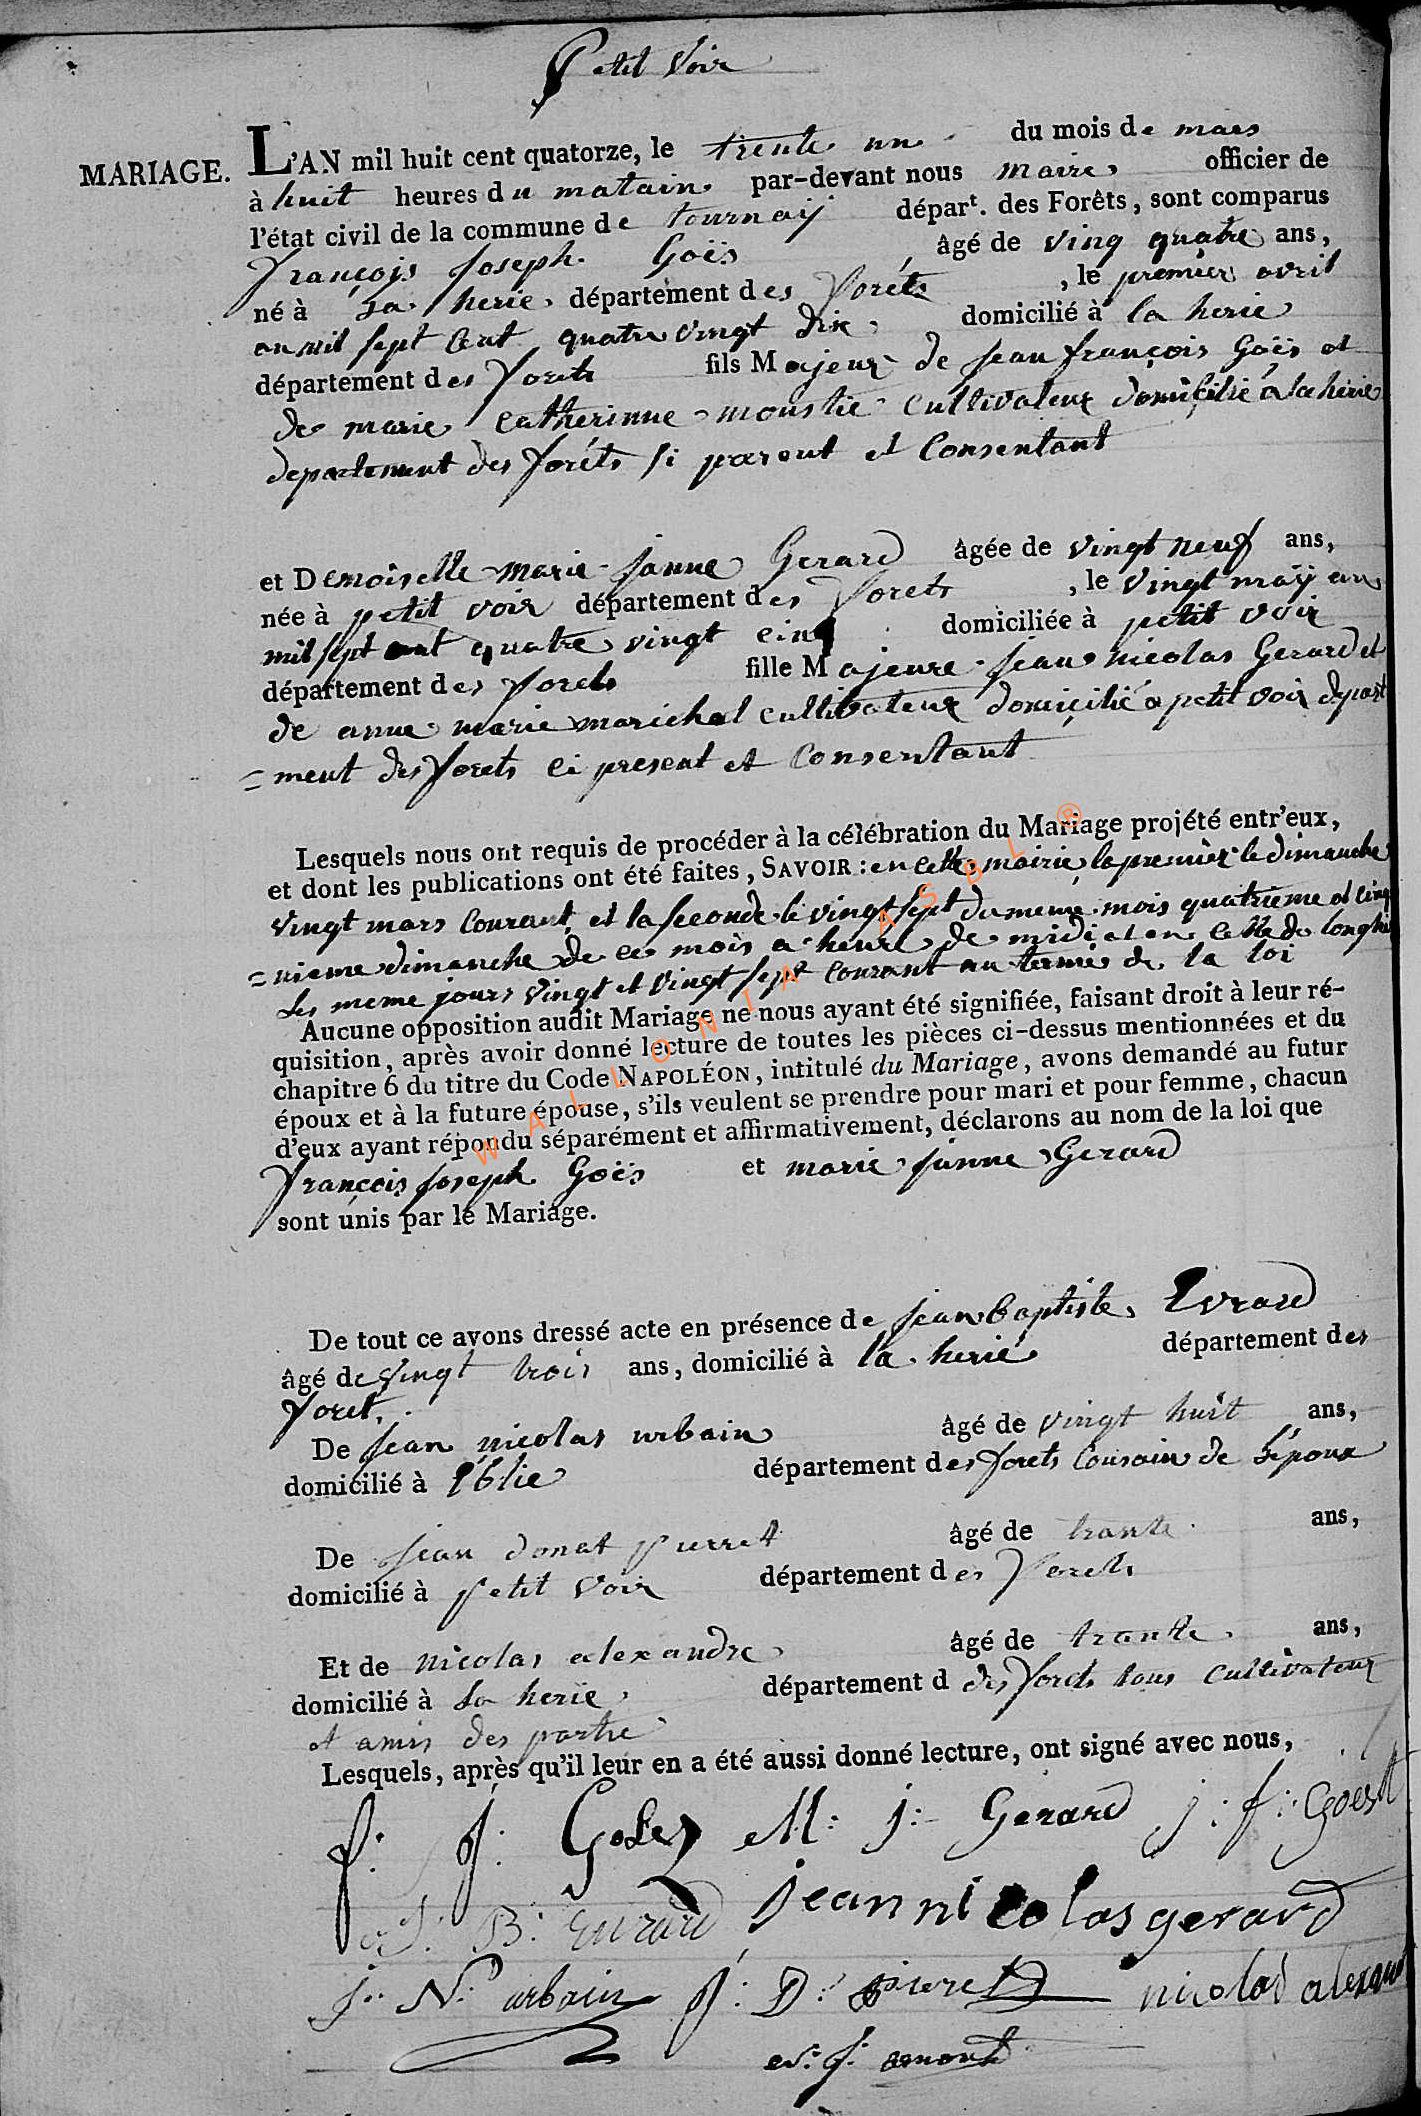 Petit Voir
MARIAGE.
L'AN mil huit cent quatorze, le trente un du mois de mars
à huit heures du matain par-devant nous maire officier de
l'état civil de la commune de tournaÿ départ. des Forêts, sont comparus
françois Joseph Goës âgé de ving quatre ans,
né à La herie département des forêts, le premier avril
an mil sept Cent quatre vingt dix domicilié à la herie
département des forets fils Majeur de jean françois Goës et
de marie catherinne moustie cultivateur domicilié a la herie
departement des forêts si parent et Consentant
et Demoiselle marie janne Gerard âgée de vingt neuf ans,
née à petit voir département des forets, le vingt maÿ an
mil sept cent quatre vingt cinq domiciliée à petit voir
département des forets fille Majeure jean nicolas Gerard et
de anne marie marichal cultivateur domicilié a petit voir depart
= ment des forets ci present et Consentant
Lesquels nous ont requis de procéder à la célébration du Mariage projété entr'eux,
et dont les publications ont été faites, SAVOIR : en cette mairie la premier le dimanche
vingt mars Courant et la seconde le vingt sept du meme mois quatrieme et cinq
= nieme dimanche de ce mois a heure de midi et en cette de longlie
Les meme jours vingt et vingt sept courant au termes de la loi
Aucune opposition audit Mariage ne nous ayant été signifiée, faisant droit à leur ré-
quisition, après avoir donné lecture de toutes les pièces ci-dessus mentionnées et du
chapitre 6 du titre du Code NAPOLÉON, intitulé du Mariage, avons demandé au futur
époux et à la future épouse, s'ils veulent se prendre pour mari et pour femme, chacun
d'eux ayant répondu séparément et affirmativement, déclarons au nom de la loi que
françois Joseph Goës et marie janne Gerard
sont unis par le Mariage.
De tout ce avons dressé acte en présence de jean baptiste Evrard
âgé de vingt trois ans, domicilié à la herie département des
foret.
De jean nicolas urbain âgé de vingt huit ans,
domicilié à département des forets Cousain de L'époux
De jean donat pierret âgé de trante ans,
domicilié à petit voir département des forets
Et de nicolas alexandre âgé de trante ans,
domicilié à La herie département d des forets tous cultivateur
et amis des partie
Lesquels, après qu'il leur en a été aussi donné lecture, ont signé avec nous,
f: J: Goes M: j: Gerard j: f: Goes
J: B: Evrard jean nicolas gerard
j: N: urbain J: D: pierret nicolas alexand
WALLONIA ASBL ®